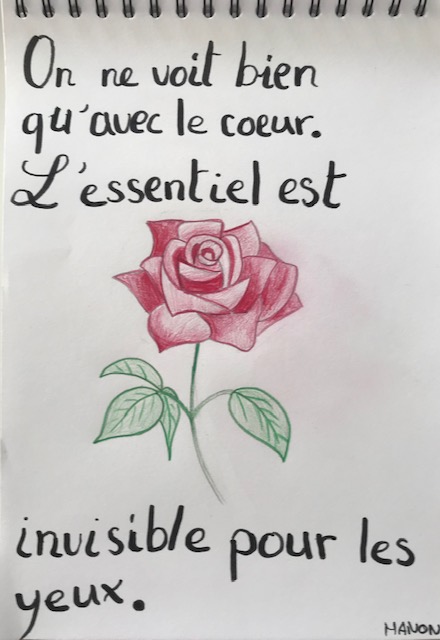 On ne voit bien
qu'avec le coeur.
L'essentiel est
invisible pour les
yeux.
MANON